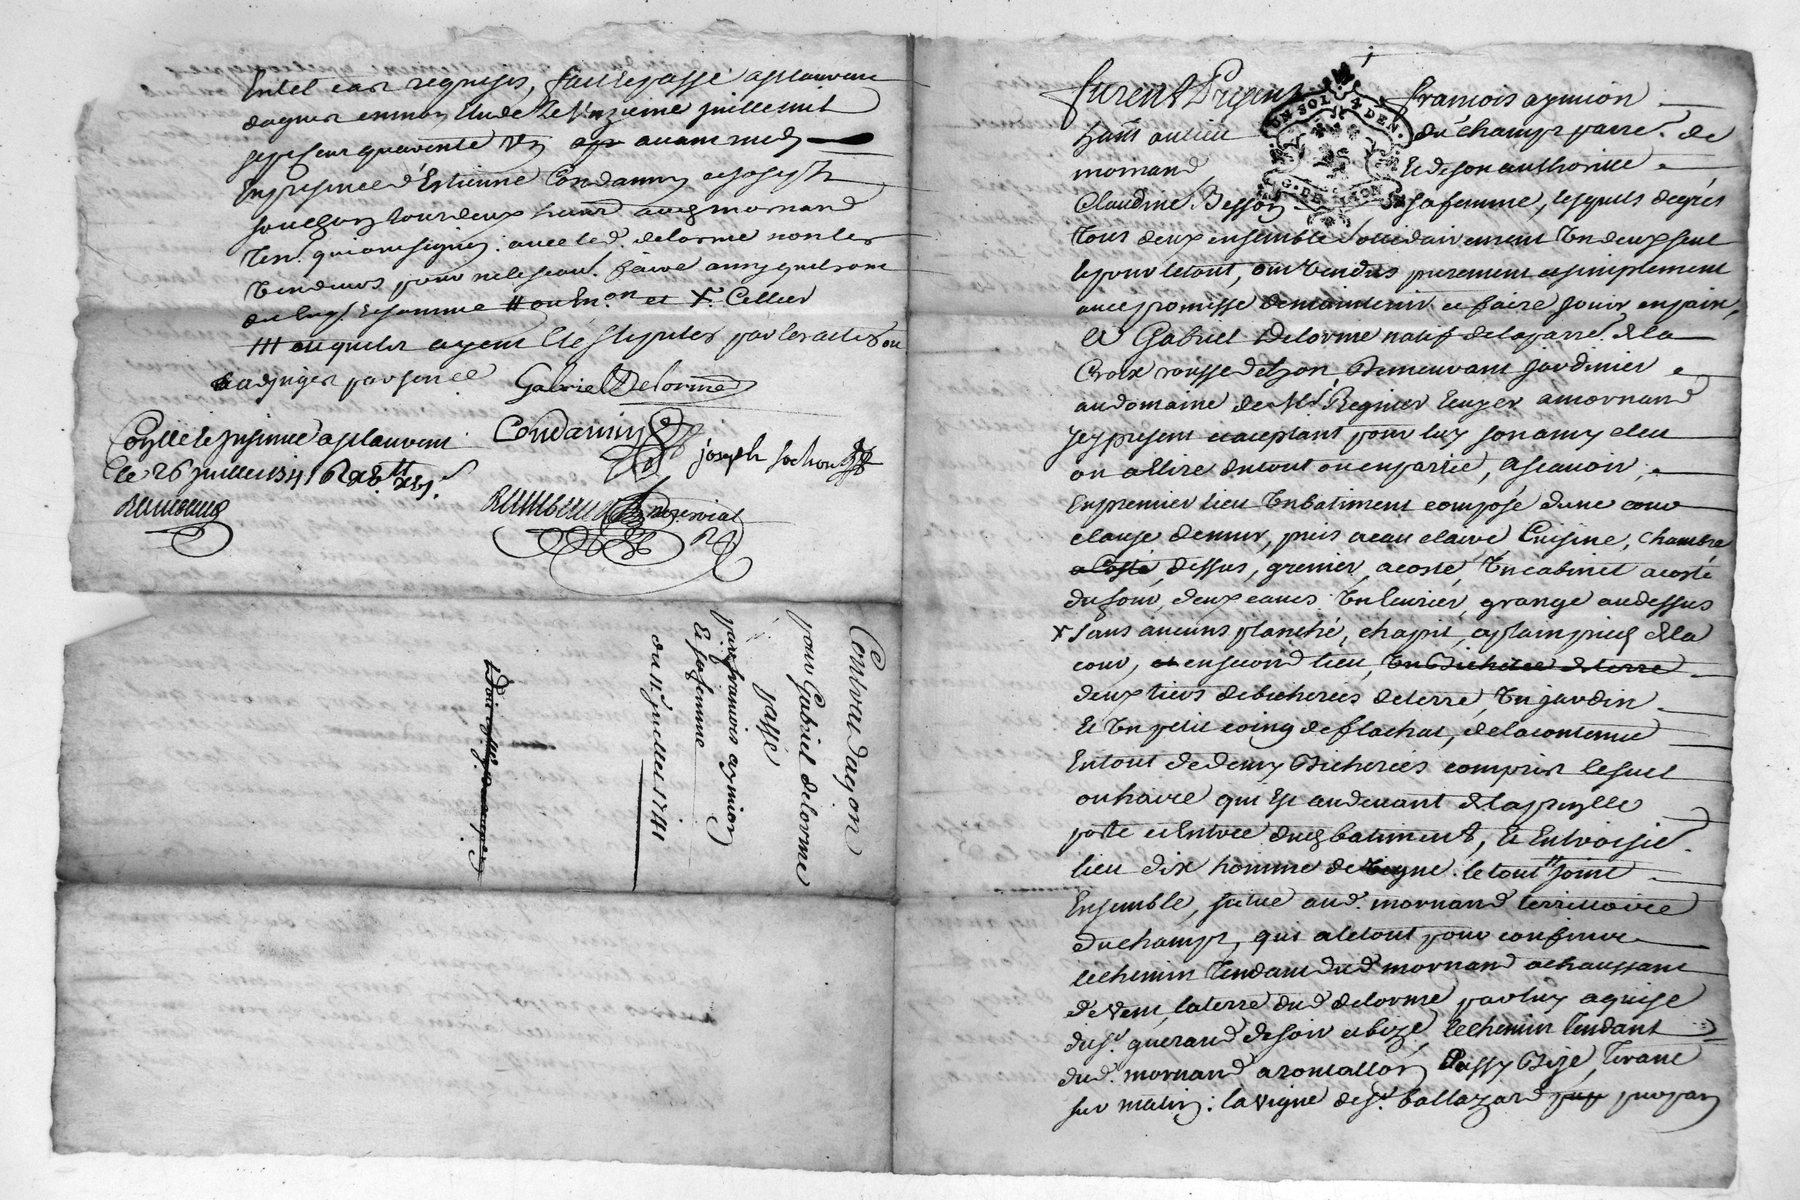 En tel cas requises, fait et passé a St laurent
dagnier en mon Etude le Unzieme juillet mil
sept cent quarente Un avant midy
En presence d'Estienne Condamin et joseph
tous deux habitants aud mornand
Ten. qui ont signé avec led. delorme non les
Vendeurs pour ne le scavoir faire
et X. Cellier
ayent Esté stipulés par les actes ou
adjuger par
Gabriel Delorme
Condamin
joseph
Controllé et Insinué a St laurent
le 26 juillet 1741
furent Presens francois aymion
habitant au lieu du champt parre. de
mornand, & de son authorité
Claudine Besson sa femme, lesquels de grés
tous deux ensemble solidairement Un deux seul
le pour le tout, ont Vendus purement et simplement
avec promesse de maintenir et faire jouir en paix,
a Gabriel Delorme natif de la parre. de la
Croix rousse de Lyon, Demeurant jardinier
au domaine de Mr. Regnier Ecuyer a mornand
Icy present et acceptant pour luy son amy eleu
ou a Elire du tout ou en partie, a scavoir,
En premier lieu Un batiment composé d'une cour
clause de mur, puis a eau claire Cuisine, chambre
a Costé, dessus, grenier, a costé, Un cabinet a costé
du four, deux caves Un Cuvier, grange au dessus
X sans aucuns planché, chapit de la
cour, et en second lieu, Un Bicherée de terre
deux tiers de bicherées de terre, Un jardin
& Un petit coing de flachat, de la contenue
En tout de demy Bicherées compris le suel
ou haire qui Est au devant de la
porte et Entrée dud batiment, & En troisie.
lieu dix homme de Vigne le tout joint
Ensemble, situé aud. mornand territoire
du champt, qui a le tout pour confins
le chemin Tendant dud mornand a chaussant
de Vent, la terre dud delorme par luy aquise
du sr. guerand de soir et bize, le chemin Tendant
dud. mornand a rontallon Bize, Tirant
sur matin: la vigne de sr. baltazard
Contrat dacqon
pour Gabriel delorme
passé
par francois aymion
& sa femme
du 11e. juillet 1741
UN SOL 4 DEN.
G. DE LION